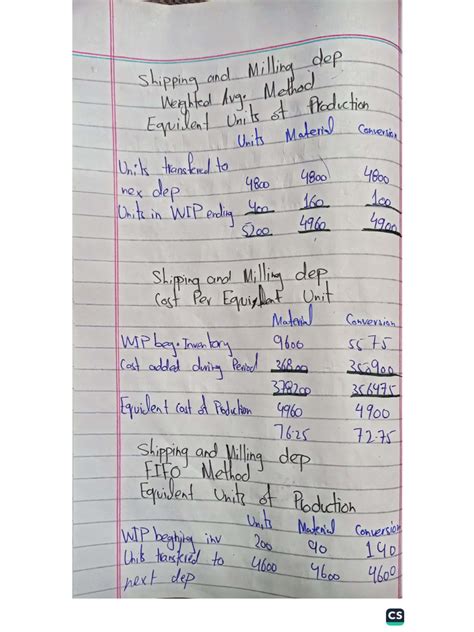 Shipping and Milling dep
Weighted Avg. Method
Equilent Units of Production
Units Material Conversion
Units transfered to
nex dep 4800 4800 4800
Units in WIP ending 400 160 100
5200 4960 4900
Shipping and Milling dep
Cost Per Equivlent Unit
Material Conversion
WIP beg. Inventory 9600 5575
Cost added during Period 368600 350900
378200 356475
Equident Cost of Production 4960 4900
76.25 72.75
Shipping and Milling dep
FIFO Method
Equident Units of Production
Units Material Conversion
WIP beghing inv 200 90 140
Units transfered to 4600 4600 4600
next dep
CS